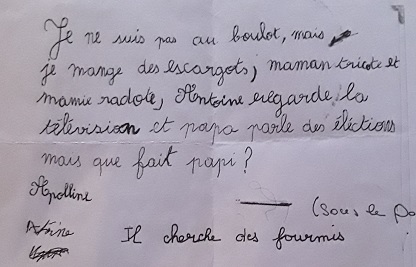 Je ne suis pas au boulot, mais
je mange des escargots, maman tricote et
mamie radote, Antoine regarde la
télévision et papa parle des éléctions
mais que fait papi?
Apolline
(sous le
Il cherche des fourmis